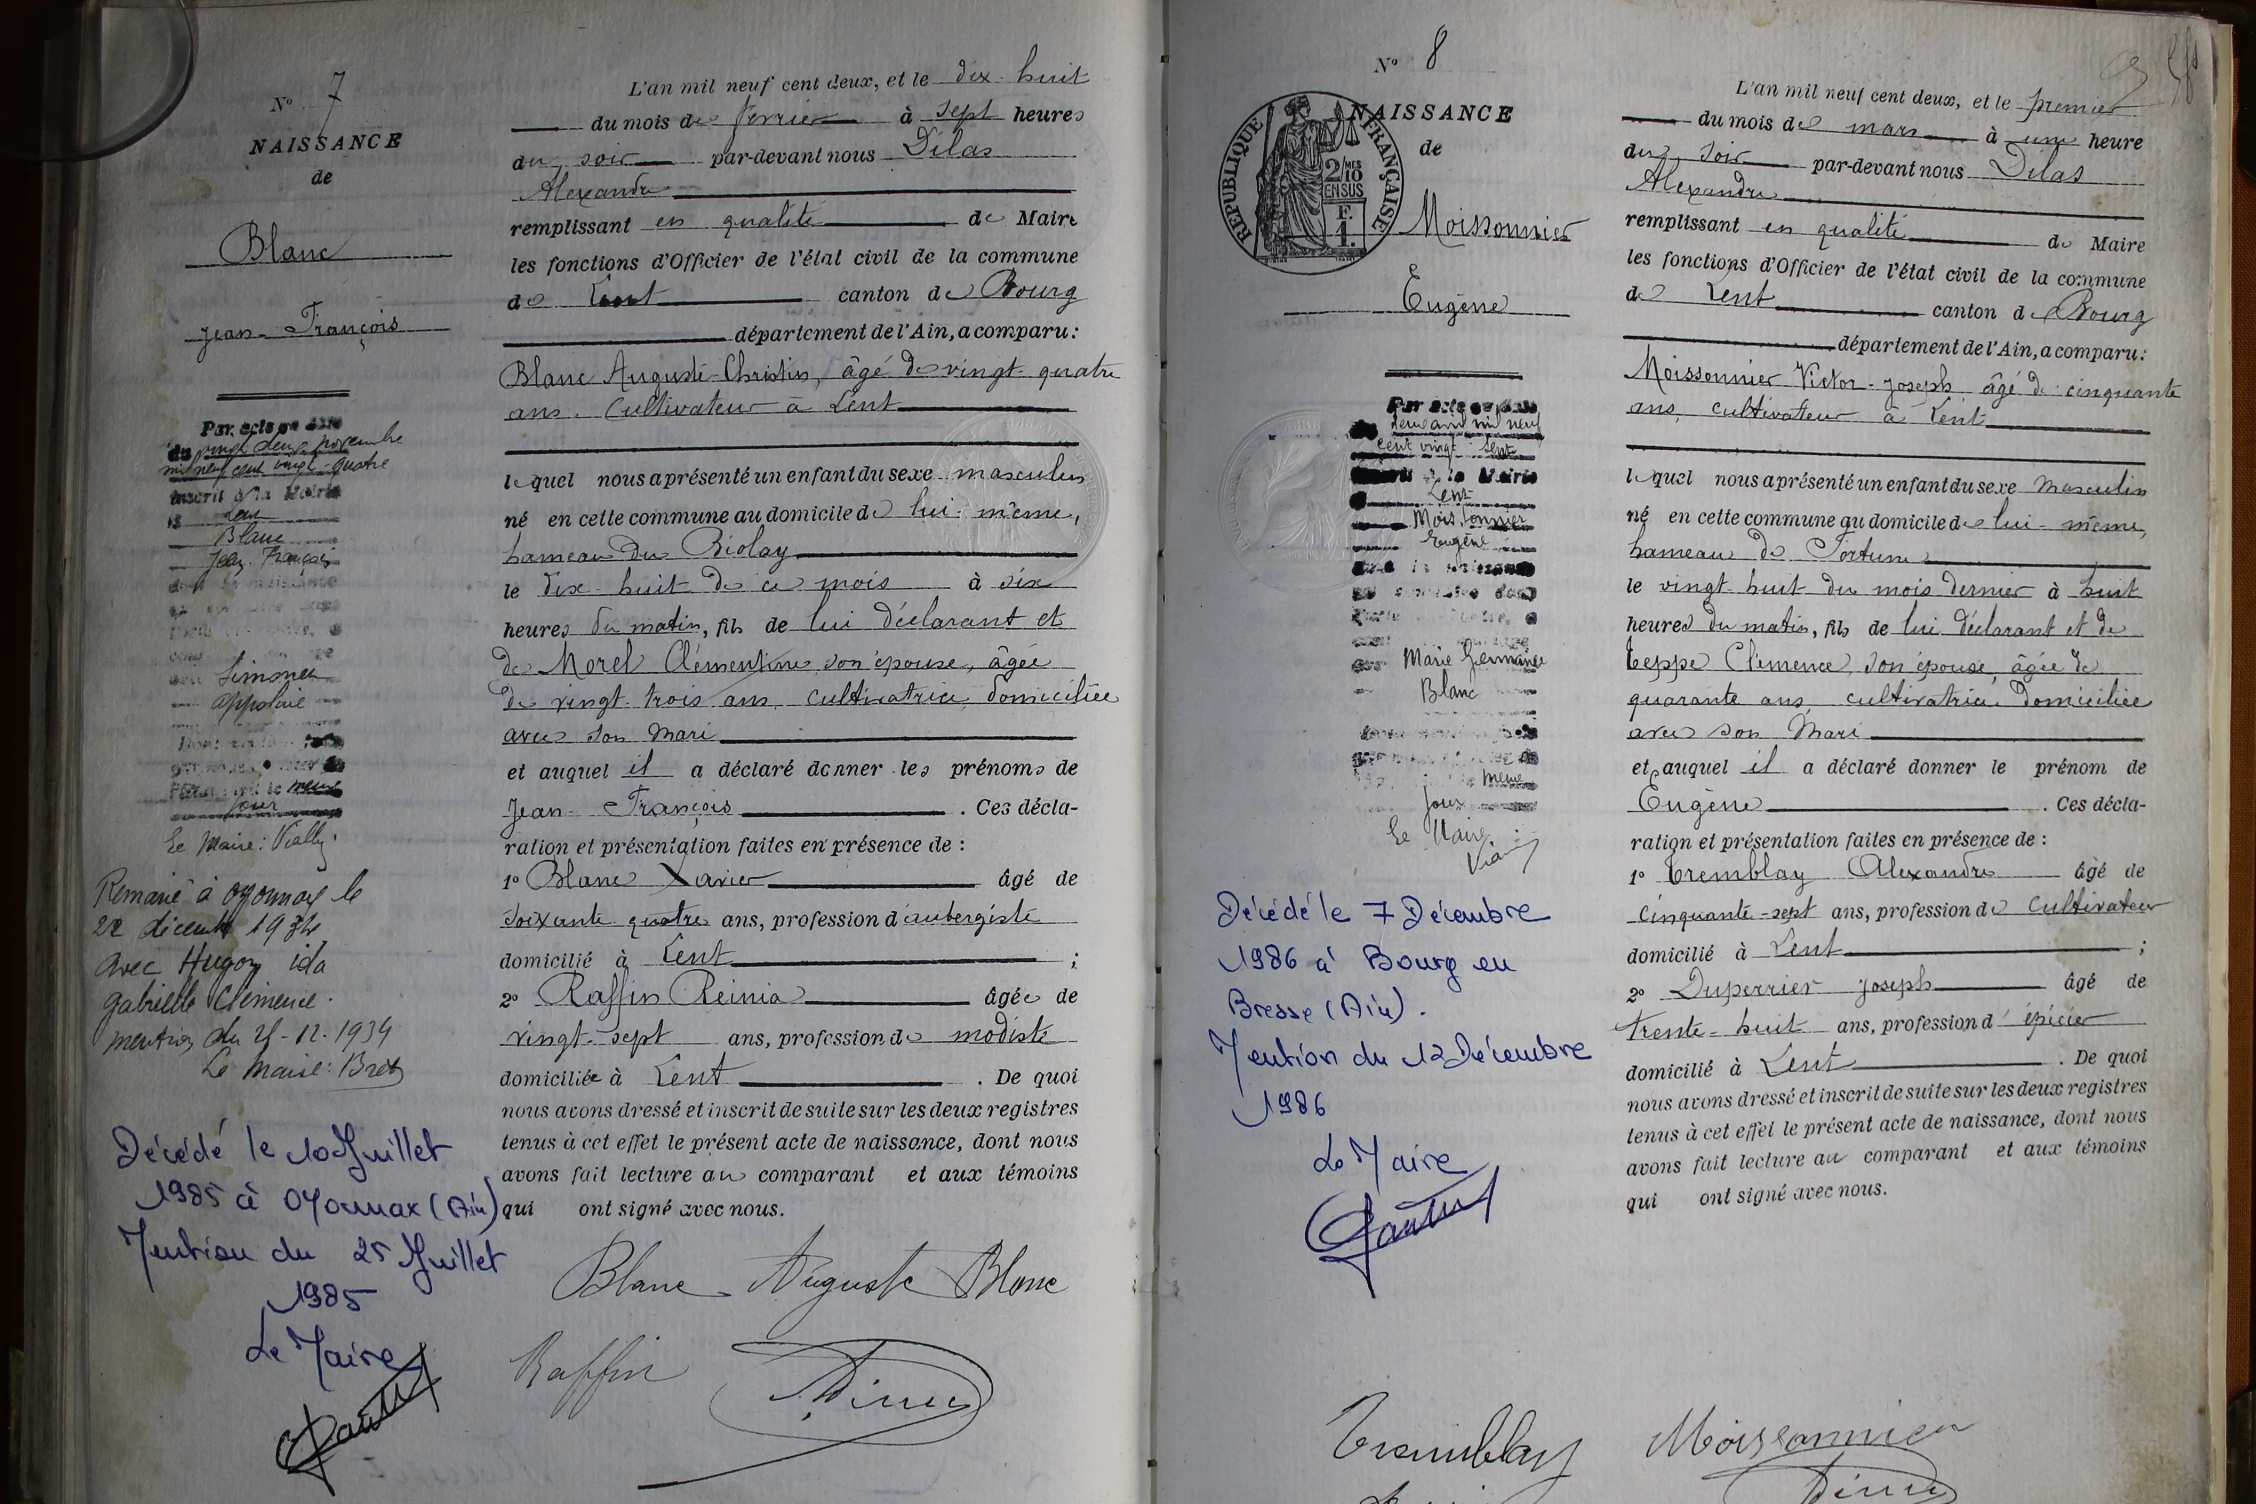 N° 7
NAISSANCE
de
Blanc
Jean-François
Par acte en date
du vingt deux novembre
mil neuf cent vingt-quatre
inscrit à la Mairie
Blanc
Jean François
Simonet
Le Maire: Vially
Remarié à Oyonnax le
22 décembre 1934
avec Hugon ida
gabrielle Clémence.
mention du 25-12-1934
Le Maire: Bret
Décédé le 10 Juillet
1985 à Oyonnax (Ain)
Mention du 25 Juillet
1985
Le Maire
L'an mil neuf cent deux, et le dix-huit
du mois de février à sept heures
du soir par-devant nous Dilas
Alexandre
remplissant en qualité de Maire
les fonctions d'Officier de l'état civil de la commune
de Lent canton de Bourg
département de l'Ain, a comparu:
Blanc Auguste-Christin, âgé de vingt-quatre
ans. Cultivateur à Lent
lequel nous a présenté un enfant du sexe masculin
né en cette commune au domicile de lui-même,
hameau du Biolay
le dix-huit de ce mois à six
heures du matin, fils de lui déclarant et
de Morel Clémentine son épouse, âgée
de vingt-trois ans, cultivatrice domiciliée
avec son Mari
et auquel il a déclaré donner les prénoms de
Jean-François. Ces décla-
ration et présentation faites en présence de:
1° Blanc Xavier âgé de
soixante quatre ans, profession d'aubergiste
domicilié à Lent ;
2° Raffin Reinia âgée de
vingt-sept ans, profession de modiste
domiciliée à Lent. De quoi
nous avons dressé et inscrit de suite sur les deux registres
tenus à cet effet le présent acte de naissance, dont nous
avons fait lecture au comparant et aux témoins
qui ont signé avec nous.
Blanc Auguste Blanc
Raffin
N° 8
RÉPUBLIQUE FRANÇAISE
2/10
EN SUS
F.
1.
NAISSANCE
de
Moissonnier
Eugène
Par acte en date
deux avril mil neuf
cent vingt-sept
Lent
Moissonnier
Eugène
Marie Germaine
Blanc
même
jour
Le Maire:
Décédé le 7 Décembre
1986 à Bourg en
Bresse (Ain).
Mention du 12 Décembre
1986
Le Maire
L'an mil neuf cent deux, et le premier
du mois de mars à une heure
du soir par-devant nous Dilas
Alexandre
remplissant en qualité de Maire
les fonctions d'Officier de l'état civil de la commune
de Lent canton de Bourg
département de l'Ain, a comparu:
Moissonnier Victor-Joseph âgé de cinquante
ans, cultivateur à Lent
lequel nous a présenté un enfant du sexe masculin
né en cette commune au domicile de lui-même,
hameau de Fortune
le vingt-huit du mois dernier à huit
heures du matin, fils de lui déclarant et de
Teppe Clémence, son épouse, âgée de
quarante ans, cultivatrice domiciliée
avec son Mari
et auquel il a déclaré donner le prénom de
Eugène. Ces décla-
ration et présentation faites en présence de:
1° Tremblay Alexandre âgé de
cinquante-sept ans, profession de cultivateur
domicilié à Lent ;
2° Duperrier Joseph âgé de
trente-huit ans, profession d'épicier
domicilié à Lent. De quoi
nous avons dressé et inscrit de suite sur les deux registres
tenus à cet effet le présent acte de naissance, dont nous
avons fait lecture au comparant et aux témoins
qui ont signé avec nous.
Tremblay Moissonnier